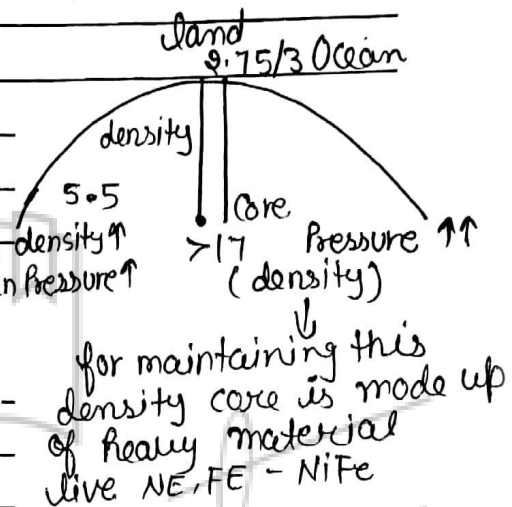 land
2.75/3 Ocean
density
5.5
Core
density↑
>17
Pressure ↑↑
n Pressure↑
(density)
↓
for maintaining this
density core is mode up
of heavy material
live NE, FE - NiFe